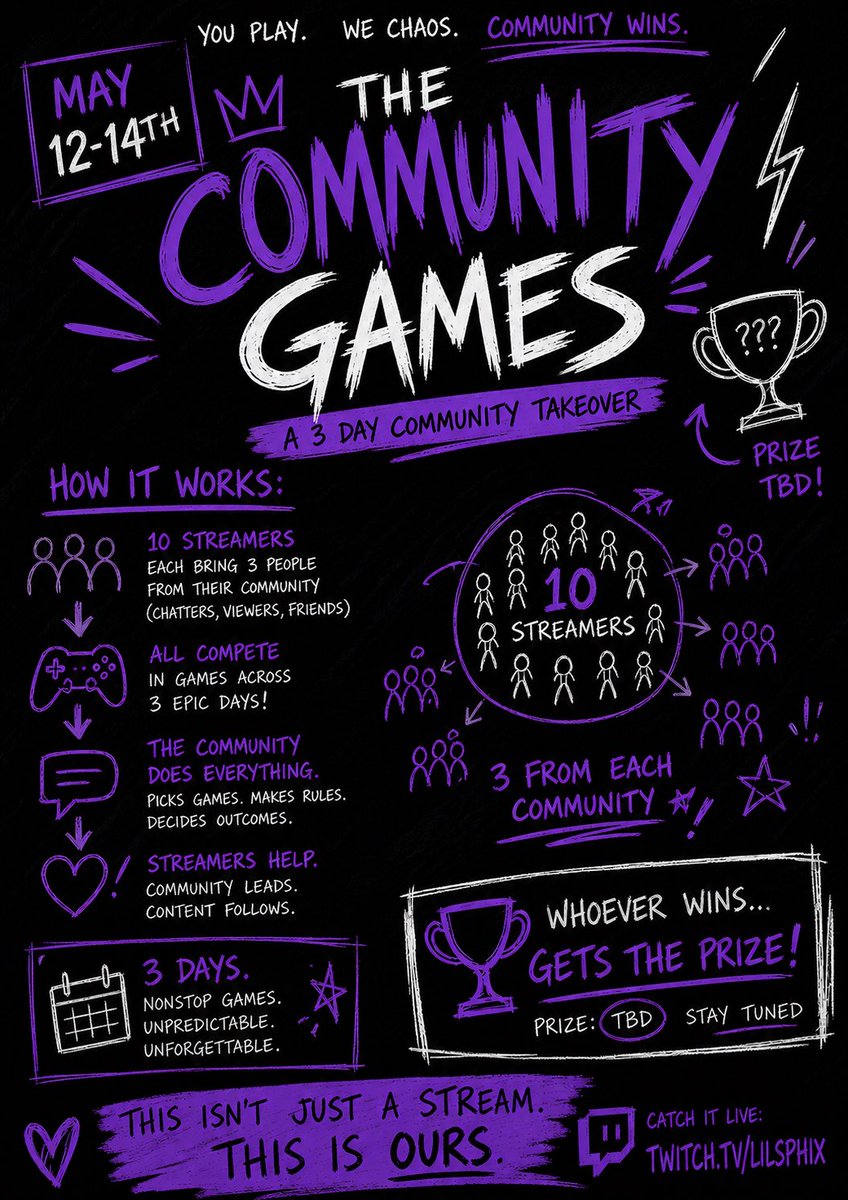 YOU PLAY. WE CHAOS. COMMUNITY WINS.
MAY
12-14TH
THE
COMMUNITY
GAMES
A 3 DAY COMMUNITY TAKEOVER
???
PRIZE
TBD!
HOW IT WORKS:
10 STREAMERS
EACH BRING 3 PEOPLE
FROM THEIR COMMUNITY
(CHATTERS, VIEWERS, FRIENDS)
ALL COMPETE
IN GAMES ACROSS
3 EPIC DAYS!
THE COMMUNITY
DOES EVERYTHING.
PICKS GAMES. MAKES RULES.
DECIDES OUTCOMES.
STREAMERS HELP.
COMMUNITY LEADS.
CONTENT FOLLOWS.
10
STREAMERS
3 FROM EACH
COMMUNITY
3 DAYS.
NONSTOP GAMES.
UNPREDICTABLE.
UNFORGETTABLE.
WHOEVER WINS...
GETS THE PRIZE!
PRIZE: TBD STAY TUNED
THIS ISN'T JUST A STREAM.
THIS IS OURS.
CATCH IT LIVE:
TWITCH.TV/LILSPHIX